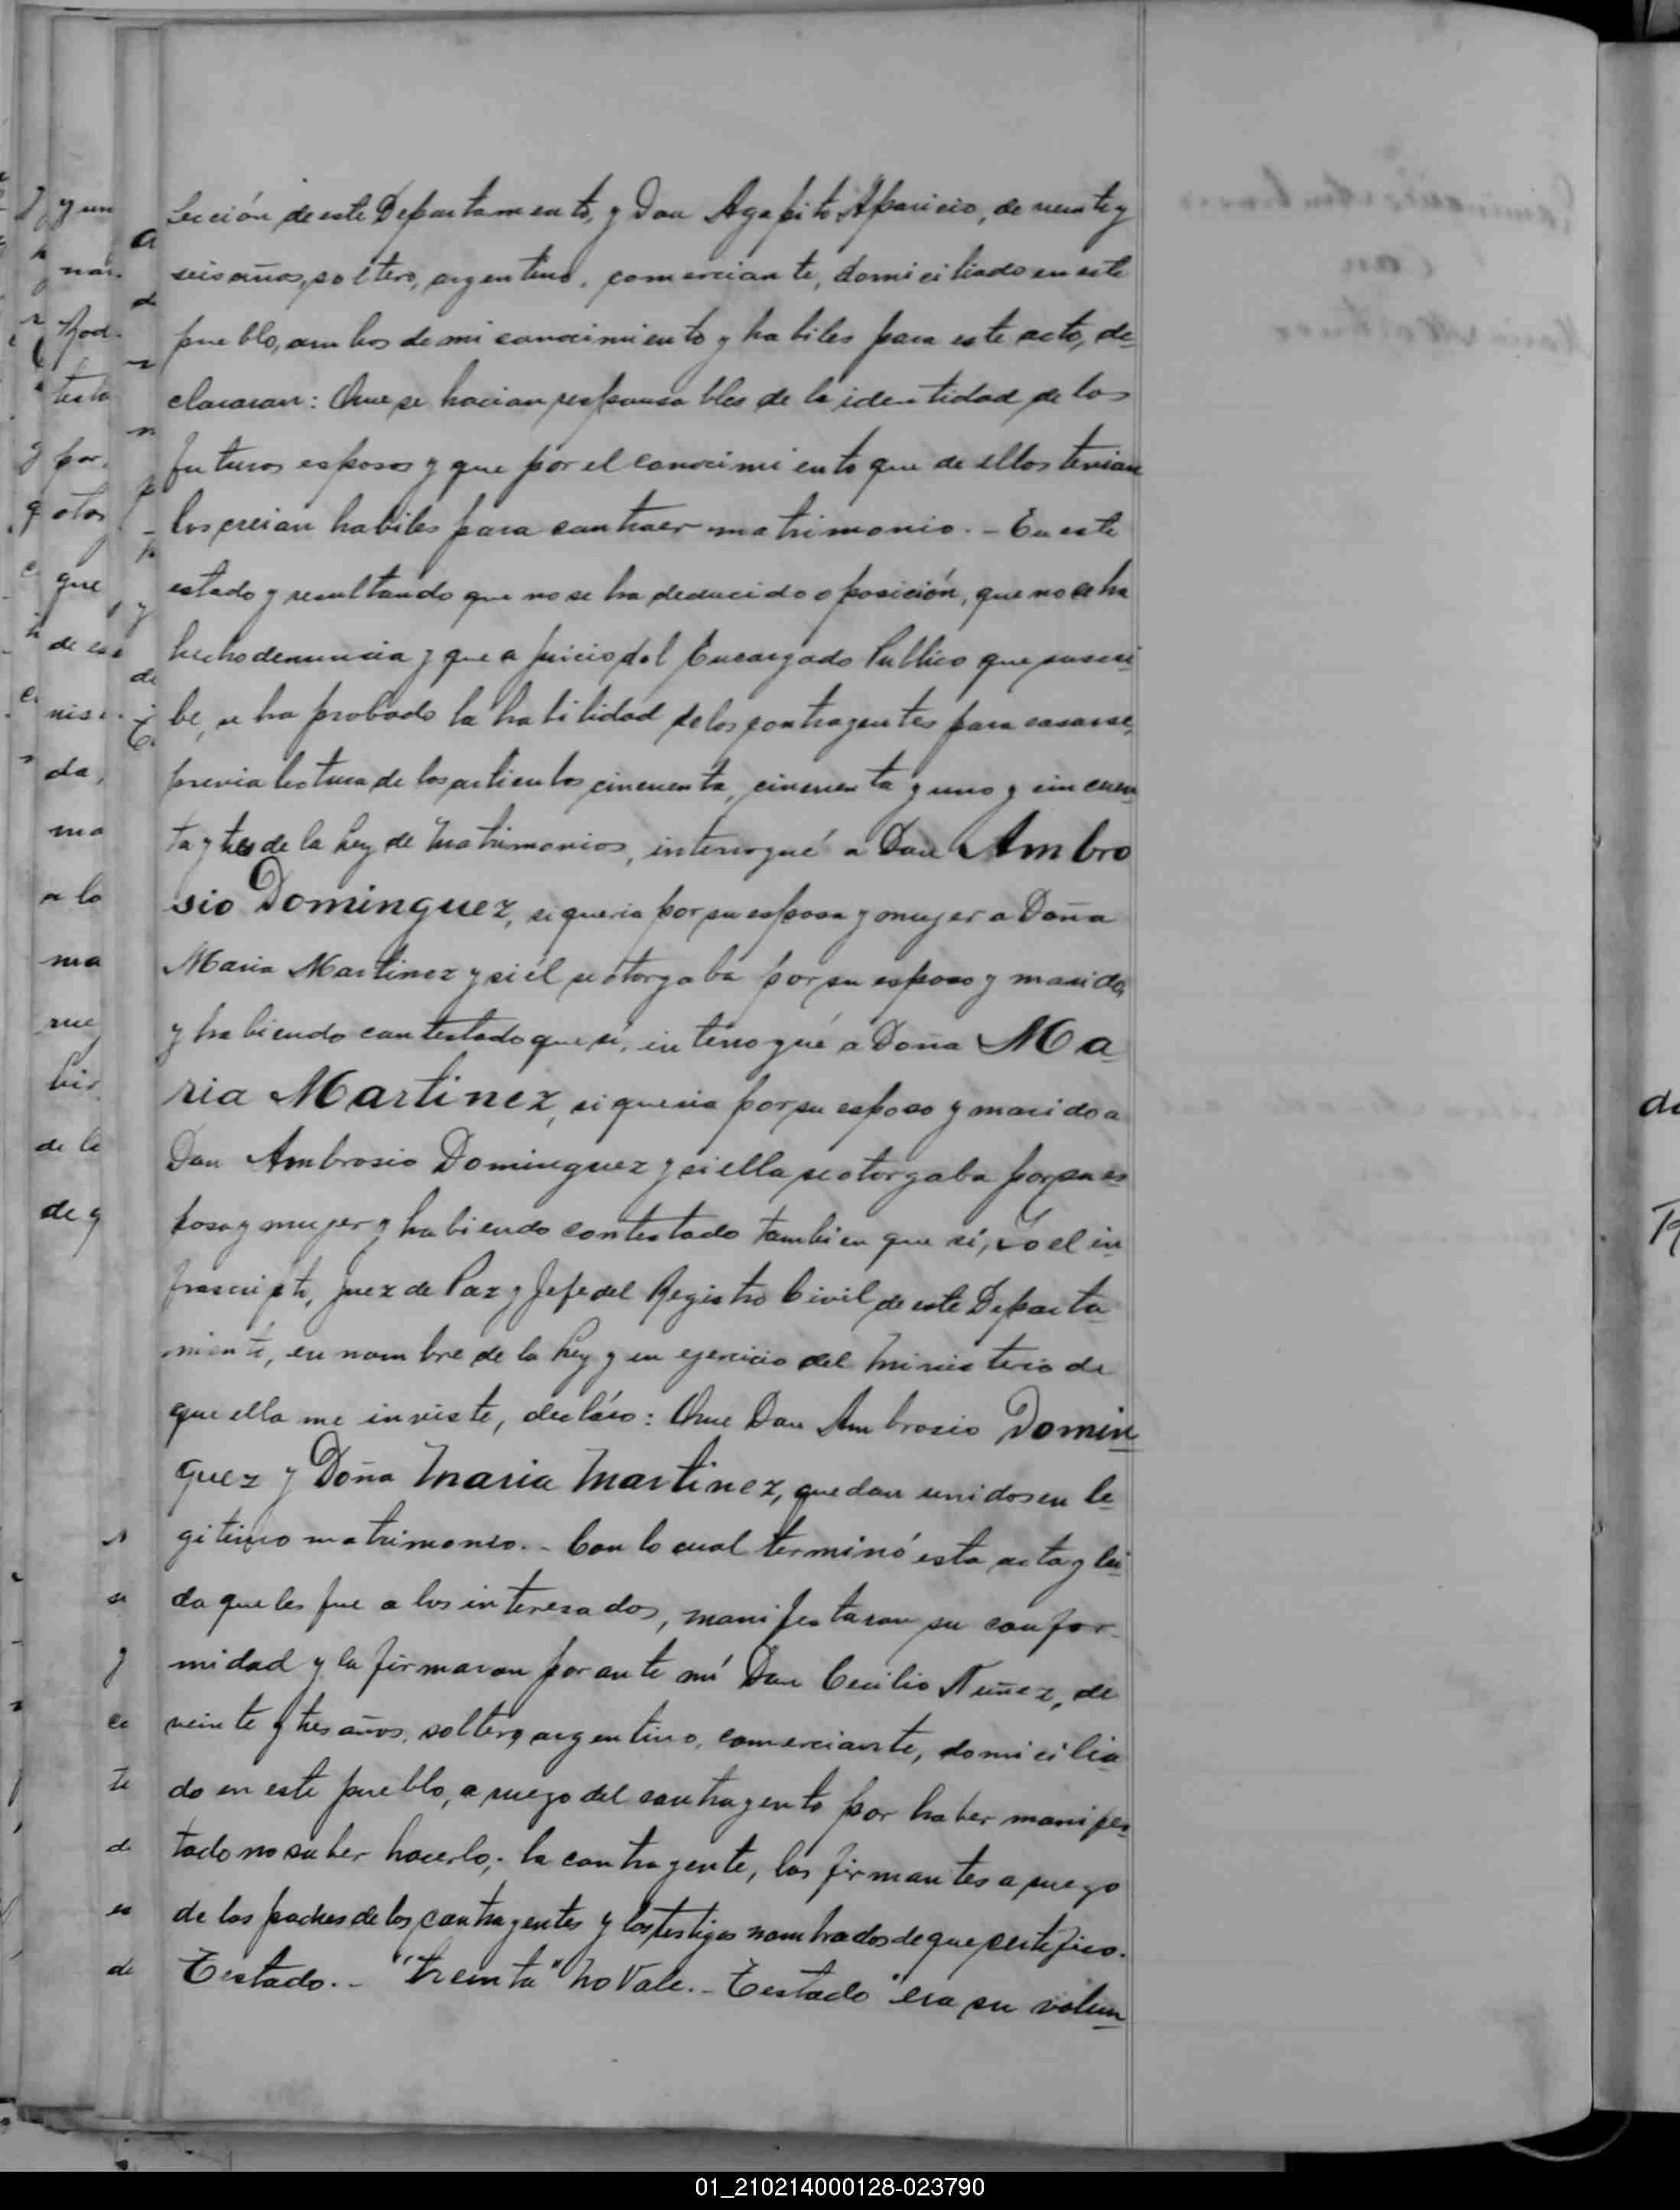 Sección de este Departamento, y Don Agapito Aparicio, de veinte y
seis años, soltero, argentino, comerciante, domiciliado en este
pueblo, ambos de mi conocimiento y habiles para este acto, de-
clararan: Que se hacian responsables de la identidad de los
futuros esposos y que por el conocimiento que de ellos tenian
los creian habiles para contraer matrimonio. - En este
estado y resultando que no se ha deducido oposición, que no se ha
hecho denuncia y que a juicio del Encargado Publico que suscri-
be, se ha probado la habilidad de los contragentes para casarse,
previa lectura de los articulos cincuenta, cincuenta y uno y cincuen-
ta y tres de la Ley de Matrimonios, interrogué a Don Ambro
sio Dominguez, si queria por su esposa y mujer a Doña
Maria Martinez y si él se otorgaba por su esposo y marido,
y habiendo contestado que sí, interrogué a Doña Ma-
ria Martinez, si queria por su esposo y marido a
Don Ambrosio Dominguez y si ella se otorgaba por su es-
posa y mujer y habiendo contestado tambien que sí, Yo el in-
frascripto, Juez de Paz y Jefe del Registro Civil de este Departa-
mento, en nombre de la Ley y en ejercicio del Ministerio de
que ella me inviste, declaro: Que Don Ambrosio Domin-
guez y Doña Maria Martinez, quedan unidos en le-
gitimo matrimonio. - Con lo cual terminó esta acta y lei-
da que les fue a los interesados, manifestaron su confor-
midad y la firmaron por ante mí Don Cecilio Nuñez, de
veinte y tres años, soltero, argentino, comerciante, domicilia-
do en este pueblo, a ruego del contragente por haber manifes-
tado no saber hacerlo, la contragente, los firmantes a ruego
de los padres de los contragentes y los testigos nombrados de que certifico.
Testado. - "treinta" No Vale. - Testado "era su volun-
01_210214000128-023790